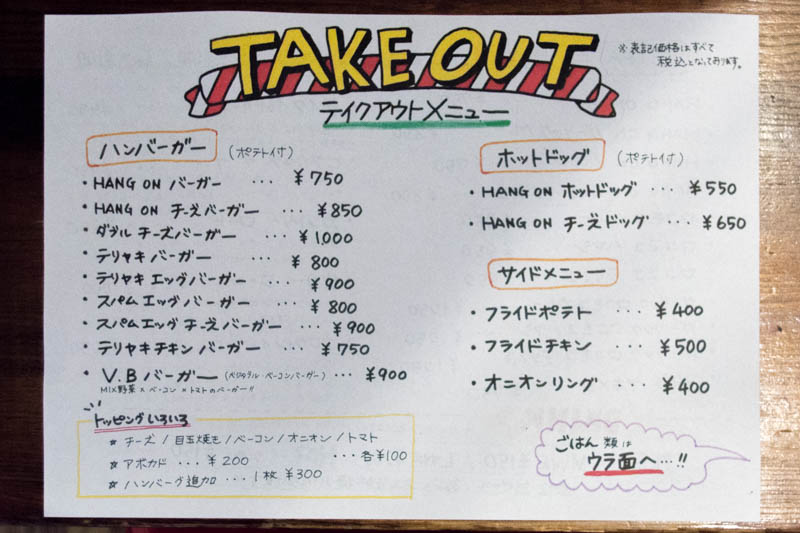 TAKE OUT
※表記価格はすべて
税込となっております。
テイクアウトメニュー
ハンバーガー (ポテト付)
・HANG ON バーガー … ¥750
・HANG ON チーズバーガー … ¥850
・ダブル チーズバーガー … ¥1,000
・テリヤキ バーガー … ¥800
・テリヤキ エッグバーガー … ¥900
・スパムエッグ バーガー … ¥800
・スパムエッグ チーズバーガー … ¥900
・テリヤキチキン バーガー … ¥750
・V.B バーガー (ベジタブル・ベーコンバーガー) … ¥900
MIX野菜×ベーコン×トマトのバーガー!!
トッピングいろいろ
☆ チーズ / 目玉焼き / ベーコン / オニオン / トマト
… 各¥100
☆ アボカド … ¥200
☆ ハンバーグ追加 … 1枚 ¥300
ホットドッグ (ポテト付)
・HANG ON ホットドッグ … ¥550
・HANG ON チーズドッグ … ¥650
サイドメニュー
・フライドポテト … ¥400
・フライドチキン … ¥500
・オニオンリング … ¥400
ごはん類は
ウラ面へ…!!